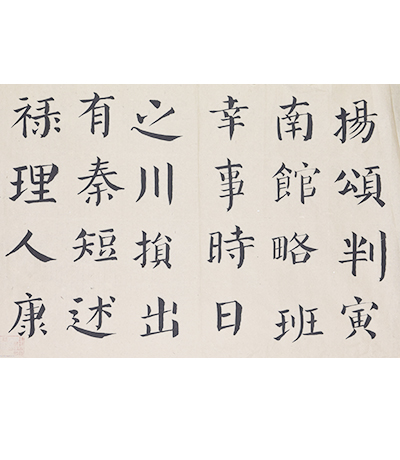 揚頌判寅
南館略班
幸事時日
之川損出
有秦短述
祿理人康